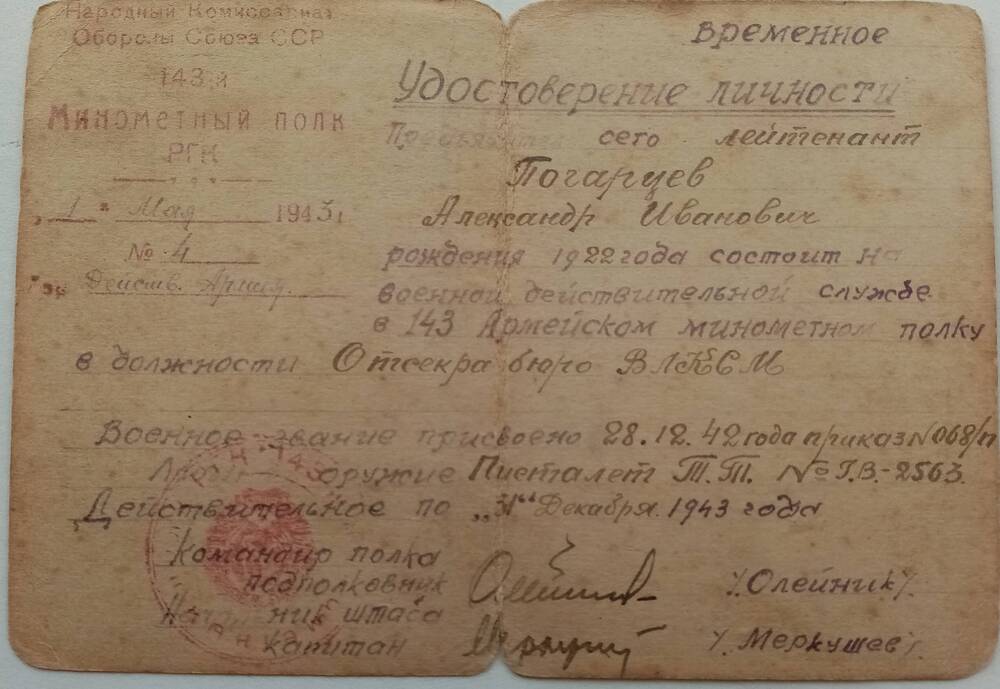 Народный Комиссариат
Обороны Союза ССР
143 й
Минометный полк
РГК
„1" Мая 1943 г
№ 4
Действ. Армия.
Временное
Удостоверение личности
Предъявитель сего лейтенант
Погарцев
Александр Иванович
рождения 1922 года состоит на
военной действительной службе
в 143 Армейском минометном полку
в должности Отсекра бюро ВЛКСМ
Военное звание присвоено 28.12.42 года приказ № 068/п
оружие Писталет Т.Т. № Г.В-2563.
Действительное по „31" Декабря 1943 года
Командир полка
подполковник /Олейник/.
Начальник штаба
капитан / Меркушев/.
143